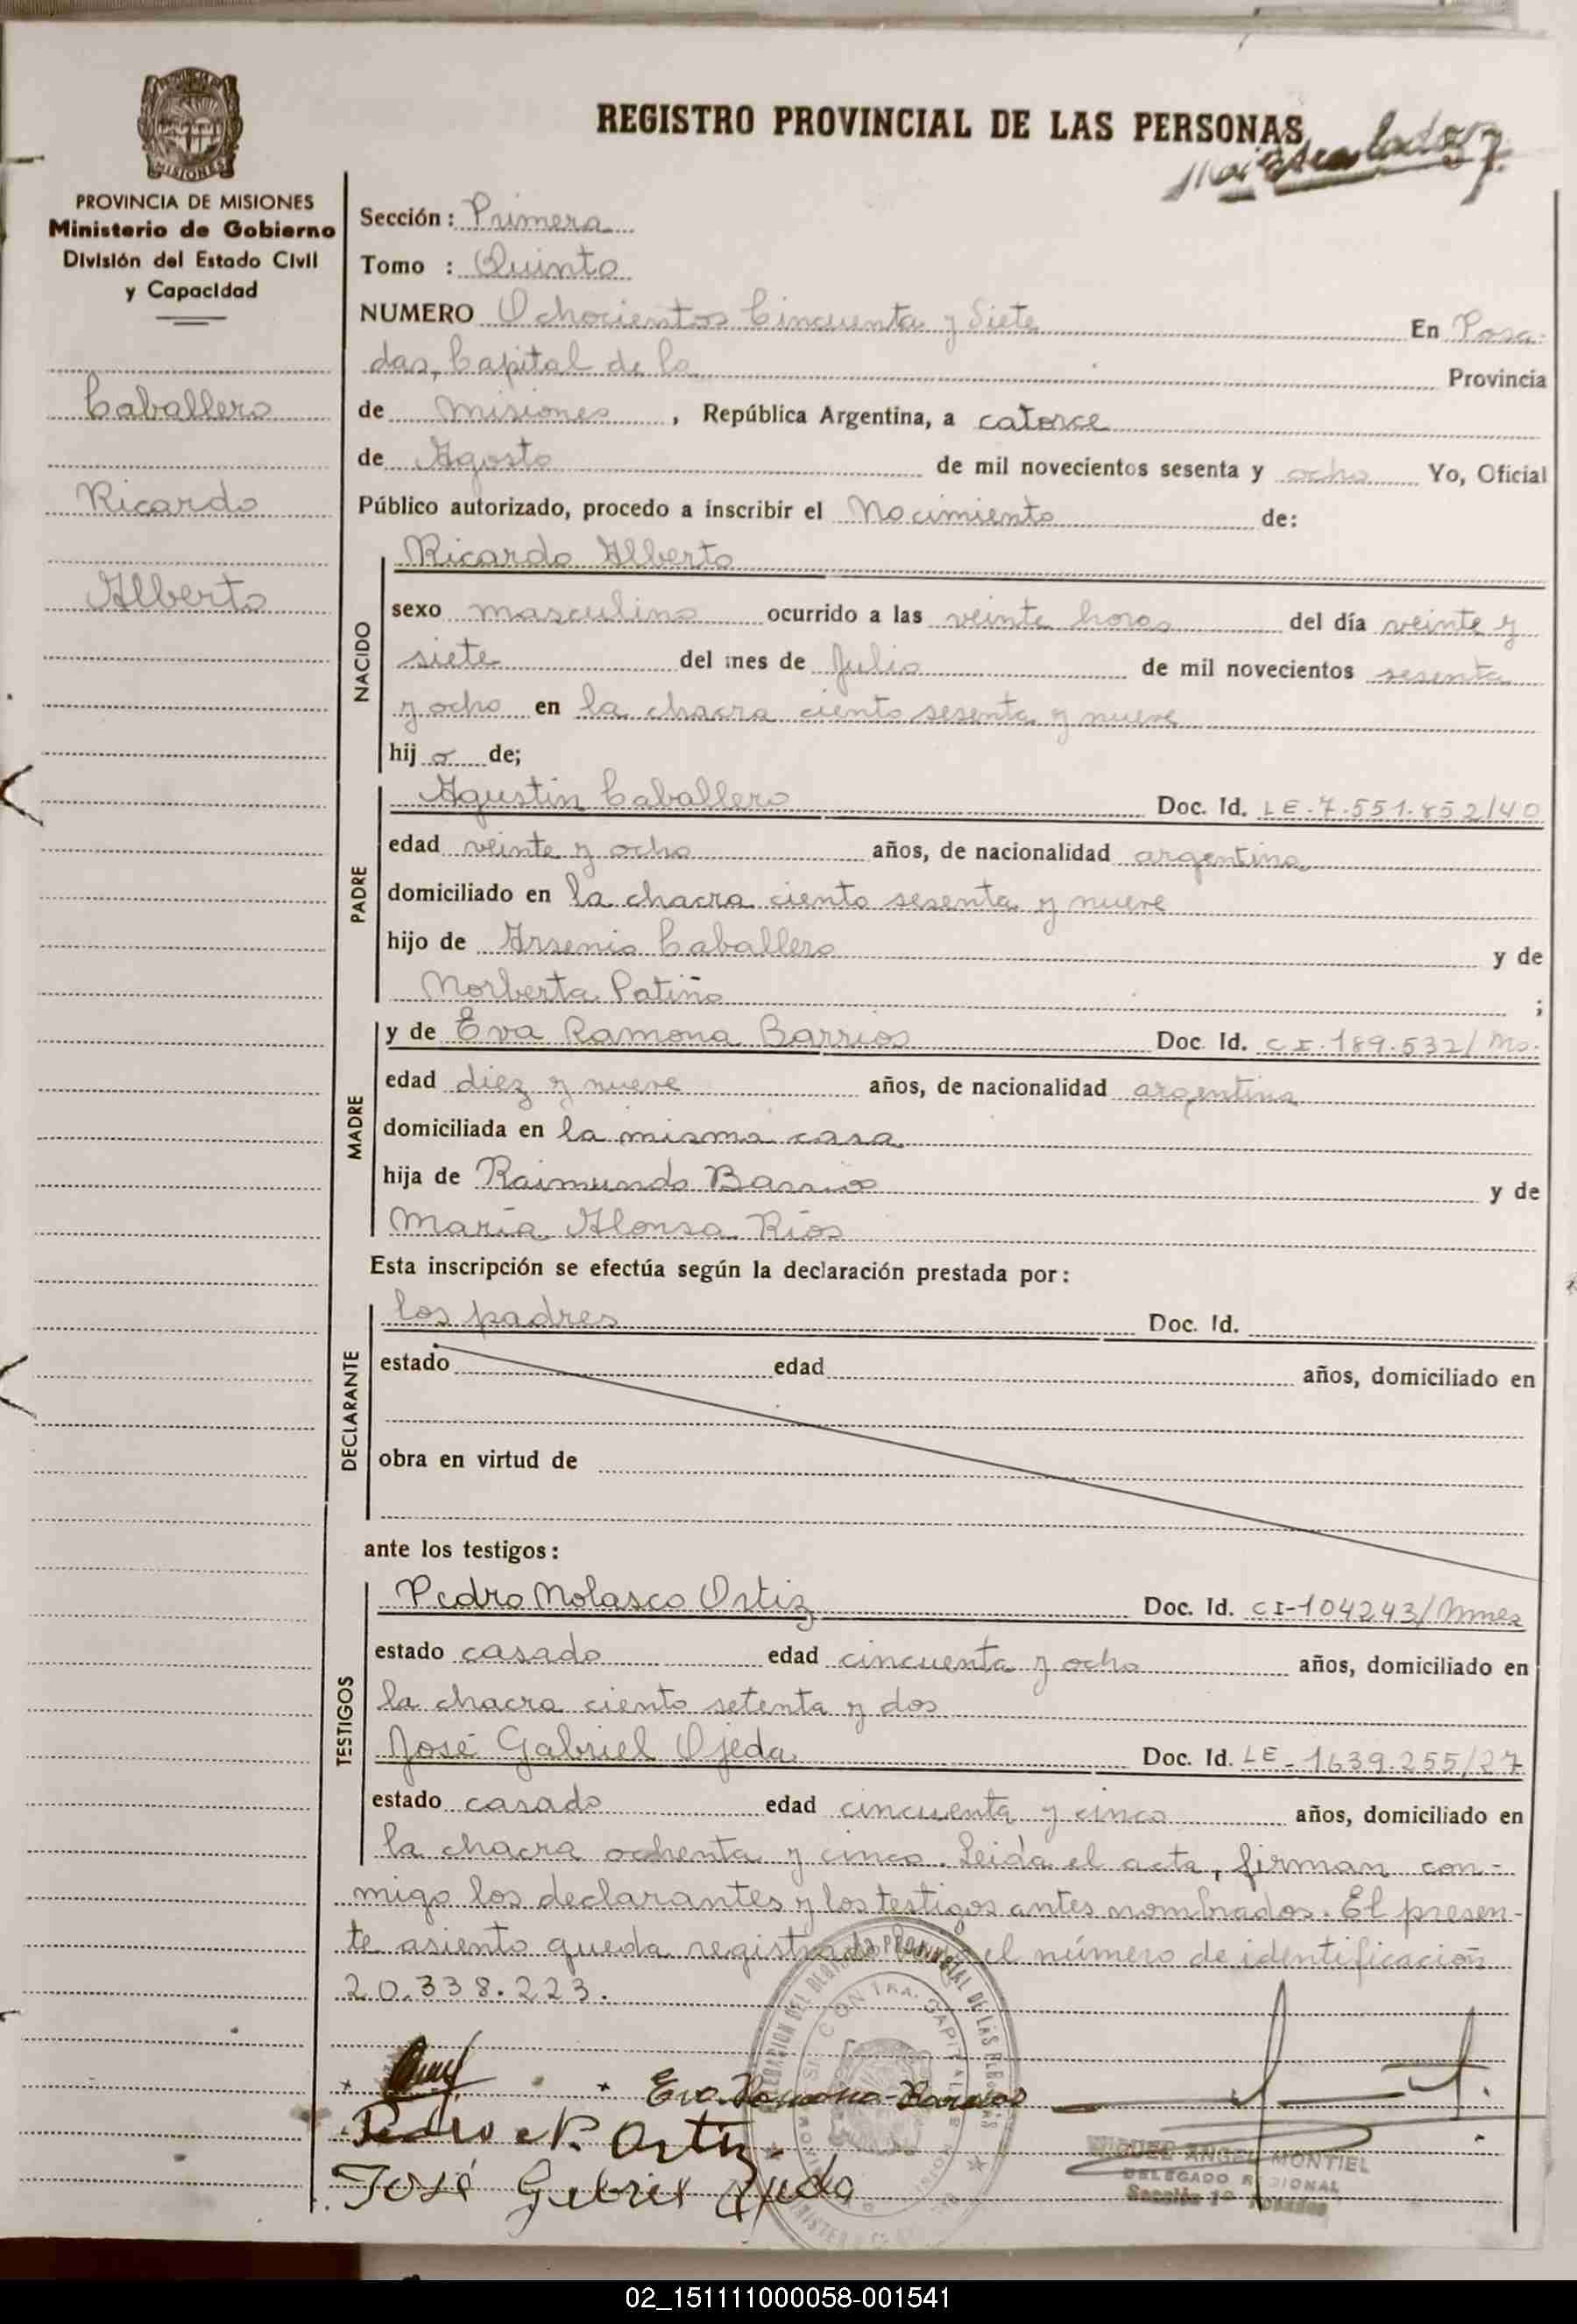 REGISTRO PROVINCIAL DE LAS PERSONAS
MISIONES
PROVINCIA DE MISIONES
Ministerio de Gobierno
División del Estado Civil
y Capacidad
Caballero
Ricardo
Alberto
Sección: Primera
Tomo : Quinto
NUMERO Ochocientos Cincuenta y Siete En Posa-
das, Capital de la Provincia
de Misiones, República Argentina, a catorce
de Agosto de mil novecientos sesenta y ocho Yo, Oficial
Público autorizado, procedo a inscribir el Nacimiento de:
NACIDO
Ricardo Alberto
sexo masculino ocurrido a las veinte horas del día veinte y
siete del mes de Julio de mil novecientos sesenta
y ocho en la chacra ciento sesenta y nueve
hijo de;
PADRE
Agustin Caballero Doc. Id. LE.7.551.852/40
edad veinte y ocho años, de nacionalidad argentina
domiciliado en la chacra ciento sesenta y nueve
hijo de Arsenio Caballero y de
Norberta Patiño ;
MADRE
y de Eva Ramona Barrios Doc. Id. CI.189.532/Mo.
edad diez y nueve años, de nacionalidad argentina
domiciliada en la misma casa
hija de Raimundo Barrios y de
María Alonsa Ríos
Esta inscripción se efectúa según la declaración prestada por:
DECLARANTE
los padres Doc. Id.
estado edad años, domiciliado en
obra en virtud de
ante los testigos:
TESTIGOS
Pedro Nolasco Ortiz Doc. Id. CI-104243/Mnes
estado casado edad cincuenta y ocho años, domiciliado en
la chacra ciento setenta y dos
José Gabriel Ojeda Doc. Id. LE-1639.255/27
estado casado edad cincuenta y cinco años, domiciliado en
la chacra ochenta y cinco. Leida el acta, firman con-
migo los declarantes y los testigos antes nombrados. El presen-
te asiento queda registrado el número de identificación
20.338.223.
Eva Ramona Barrios
Pedro N. Ortiz
José Gabriel Ojeda
MIGUEL ANGEL MONTIEL
DELEGADO REGIONAL
02_151111000058-001541